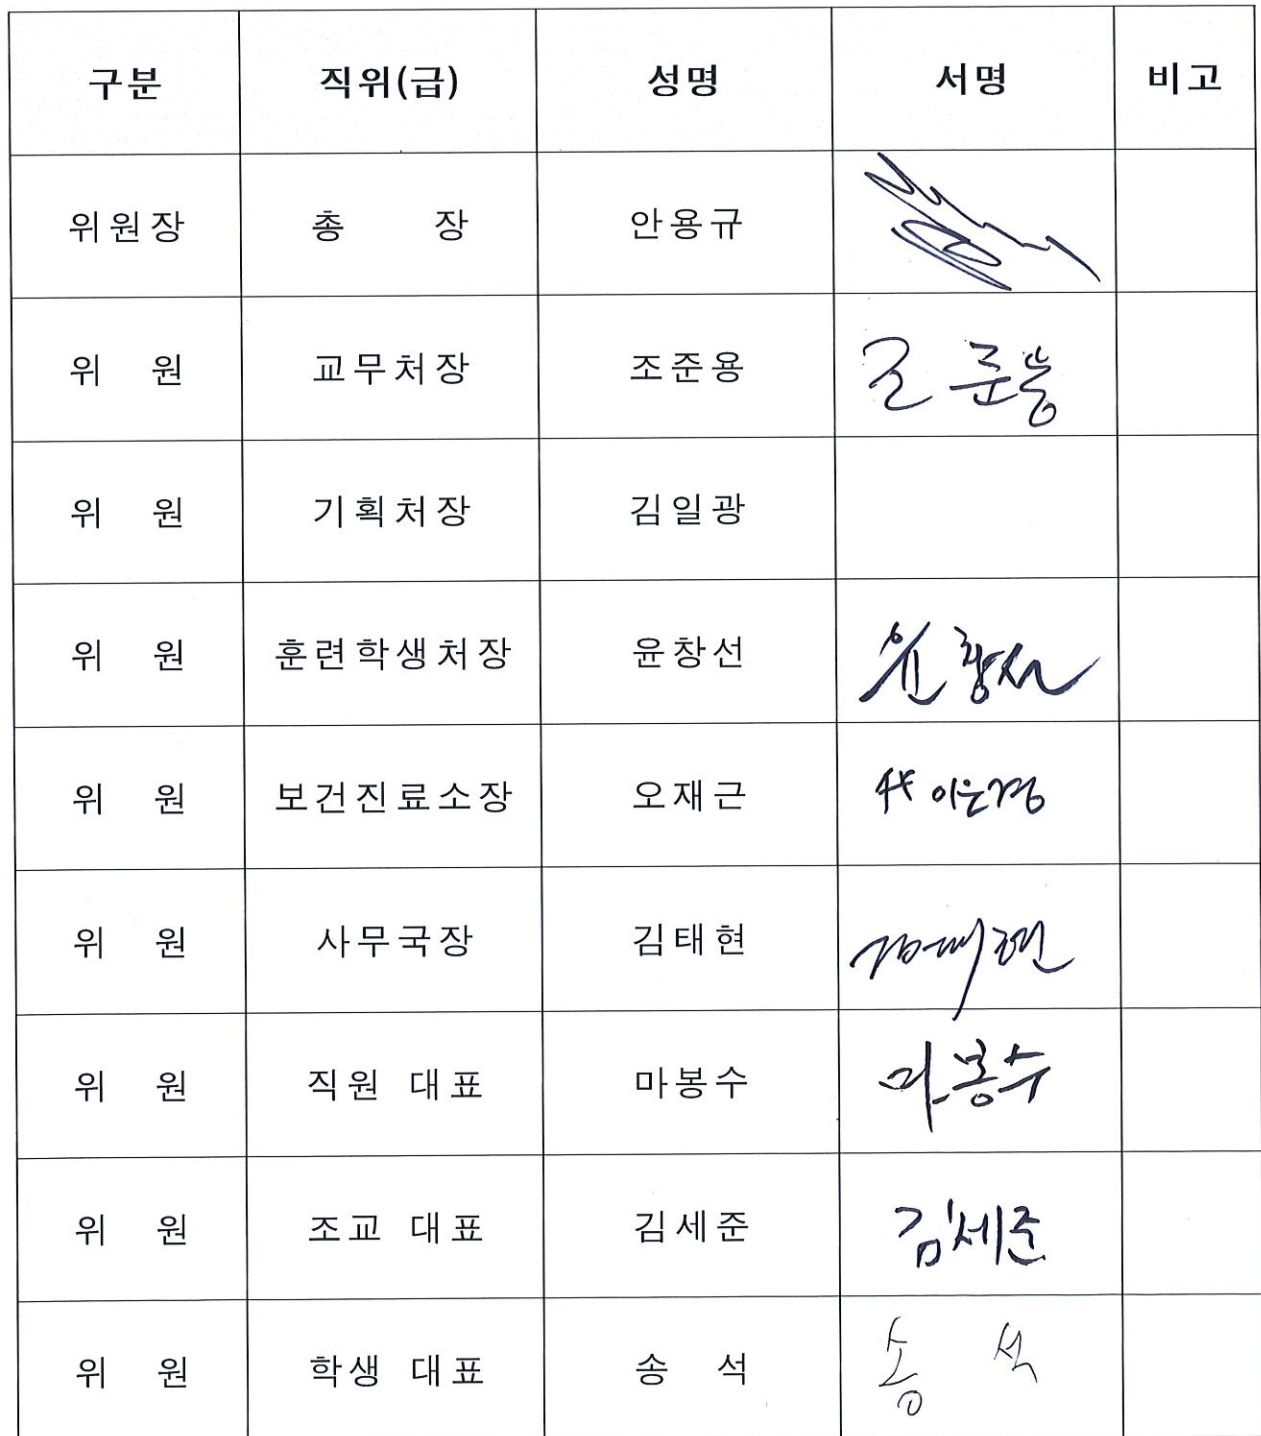 구분 직위(급) 성명 서명 비고
위원장 총 장 안용규
위 원 교무처장 조준용 조준용
위 원 기획처장 김일광
위 원 훈련학생처장 윤창선 윤창선
위 원 보건진료소장 오재근 代 이은경
위 원 사무국장 김태현 김태현
위 원 직원 대표 마봉수 마봉수
위 원 조교 대표 김세준 김세준
위 원 학생 대표 송 석 송 석